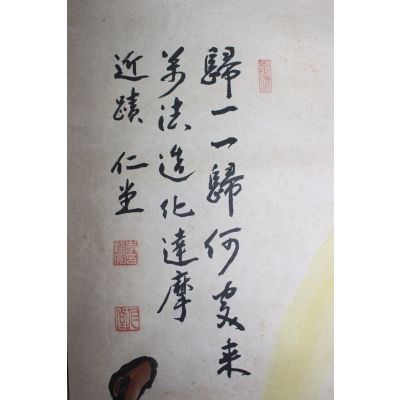 歸一一歸何處来
萬法造化達摩
近蹟 仁堂